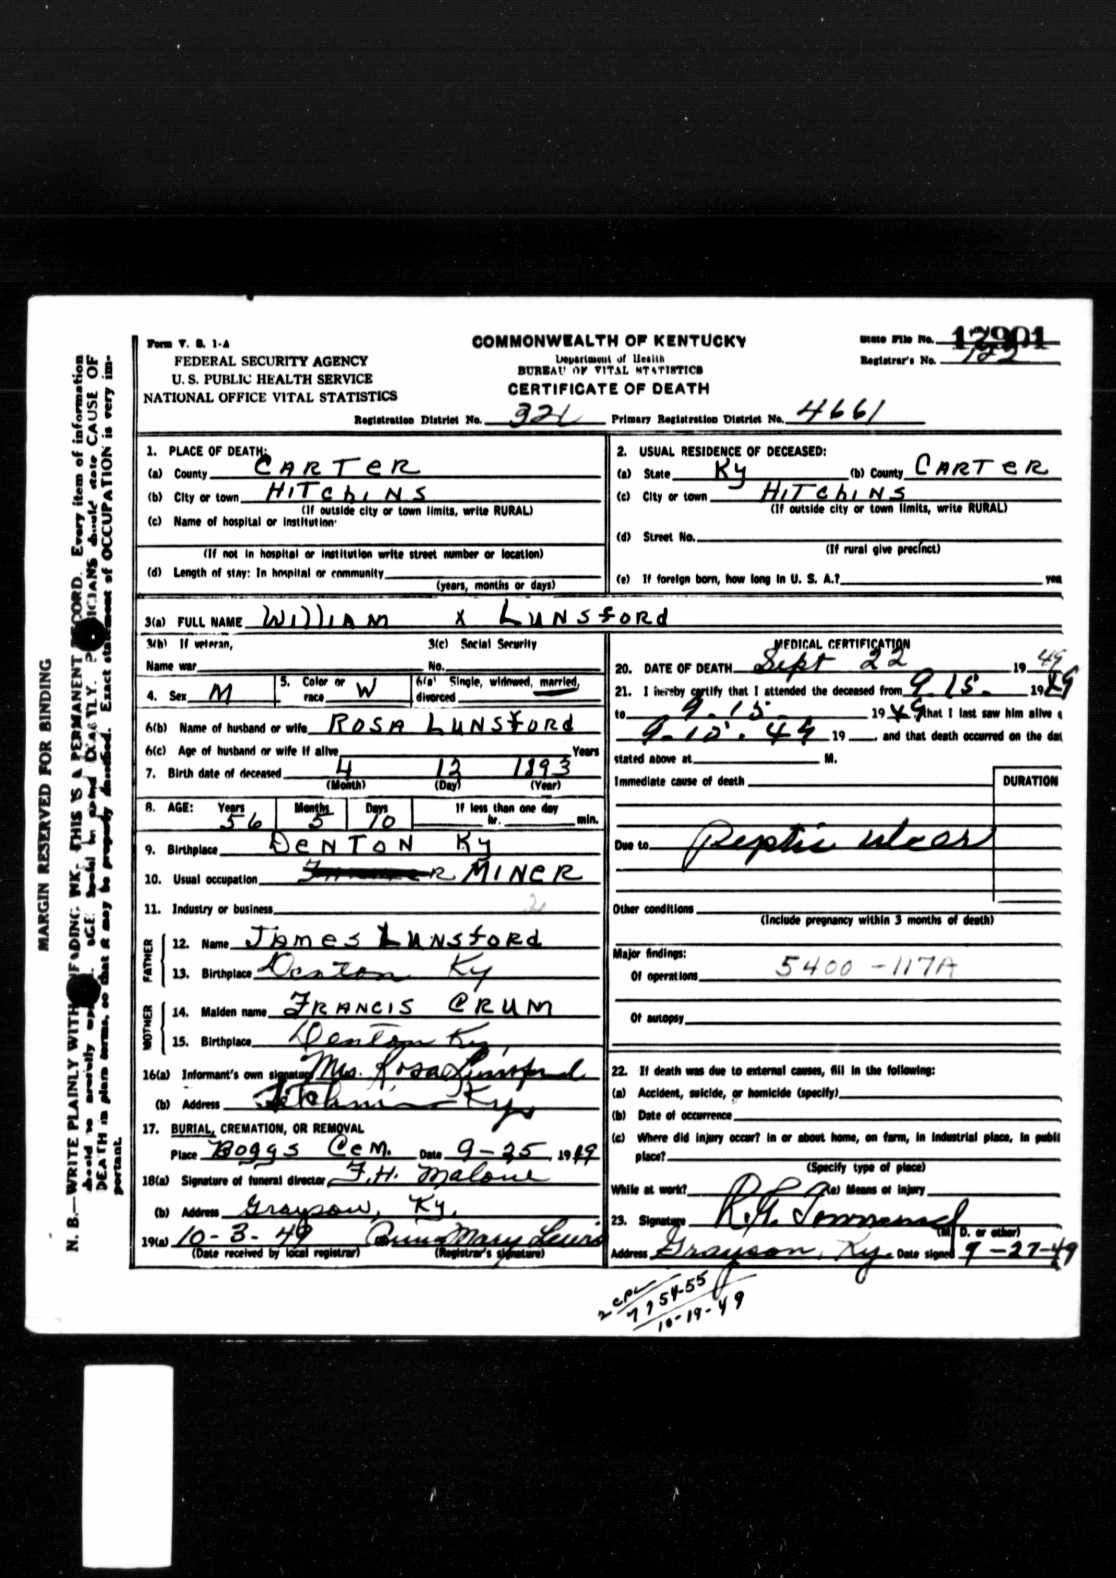 Form V. S. 1-A
FEDERAL SECURITY AGENCY
U. S. PUBLIC HEALTH SERVICE
NATIONAL OFFICE VITAL STATISTICS
COMMONWEALTH OF KENTUCKY
Department of Health
BUREAU OF VITAL STATISTICS
CERTIFICATE OF DEATH
State File No. 17901
Registrar's No. 122
Registration District No. 321 Primary Registration District No. 4661
1. PLACE OF DEATH:
(a) County CARTER
(b) City or town HITCHINS
(If outside city or town limits, write RURAL)
(c) Name of hospital or institution
(If not in hospital or institution write street number or location)
(d) Length of stay: In hospital or community
(years, months or days)
2. USUAL RESIDENCE OF DECEASED:
(a) State Ky (b) County CARTER
(c) City or town HITCHINS
(If outside city or town limits, write RURAL)
(d) Street No.
(If rural give precinct)
(e) If foreign born, how long in U. S. A.? yea
3(a) FULL NAME WILLIAM X LUNSFORD
3(b) If veteran,
Name war
3(c) Social Security
No.
4. Sex M
5. Color or
race W
6(a) Single, widowed, married,
divorced
6(b) Name of husband or wife ROSA LUNSFORD
6(c) Age of husband or wife if alive Years
7. Birth date of deceased 4 12 1893
(Month) (Day) (Year)
8. AGE: Years Months Days If less than one day
56 5 10 hr. min.
9. Birthplace DENTON Ky
10. Usual occupation MINER
11. Industry or business
FATHER
12. Name JAMES LUNSFORD
13. Birthplace Denton Ky
MOTHER
14. Maiden name FRANCIS CRUM
15. Birthplace Denton Ky.
16(a) Informant's own signature Mrs. Rosa Lunsford
(b) Address Hitchins Ky
17. BURIAL, CREMATION, OR REMOVAL
Place BOGGS CEM. Date 9-25, 1949
18(a) Signature of funeral director F.H. Malone
(b) Address Grayson, Ky.
19(a) 10-3-49 Mary Lewis
(Date received by local registrar) (Registrar's signature)
MEDICAL CERTIFICATION
20. DATE OF DEATH Sept 22 1949
21. I hereby certify that I attended the deceased from 9.15. 1949
to 9.15 1949 that I last saw him alive
9.15.49 19 , and that death occurred on the dat
stated above at M.
Immediate cause of death DURATION
Due to Peptic ulcer
Other conditions
(Include pregnancy within 3 months of death)
Major findings:
Of operations 5400-117A
Of autopsy
22. If death was due to external causes, fill in the following:
(a) Accident, suicide, or homicide (specify)
(b) Date of occurrence
(c) Where did injury occur? In or about home, on farm, in industrial place, in publi
place?
(Specify type of place)
While at work? (e) Means of injury
23. Signature Townsend
(M. D. or other)
Address Grayson, Ky. Date signed 9-27-49
7754-55
10-19-49
MARGIN RESERVED FOR BINDING
N. B.—WRITE PLAINLY WITH UNFADING INK. THIS IS A PERMANENT RECORD. Every item of information
should be carefully AGE should be EXACTLY. PHYSICIANS should state CAUSE OF
DEATH in plain terms, so that it may be properly classified. Exact statement of OCCUPATION is very im-
portant.